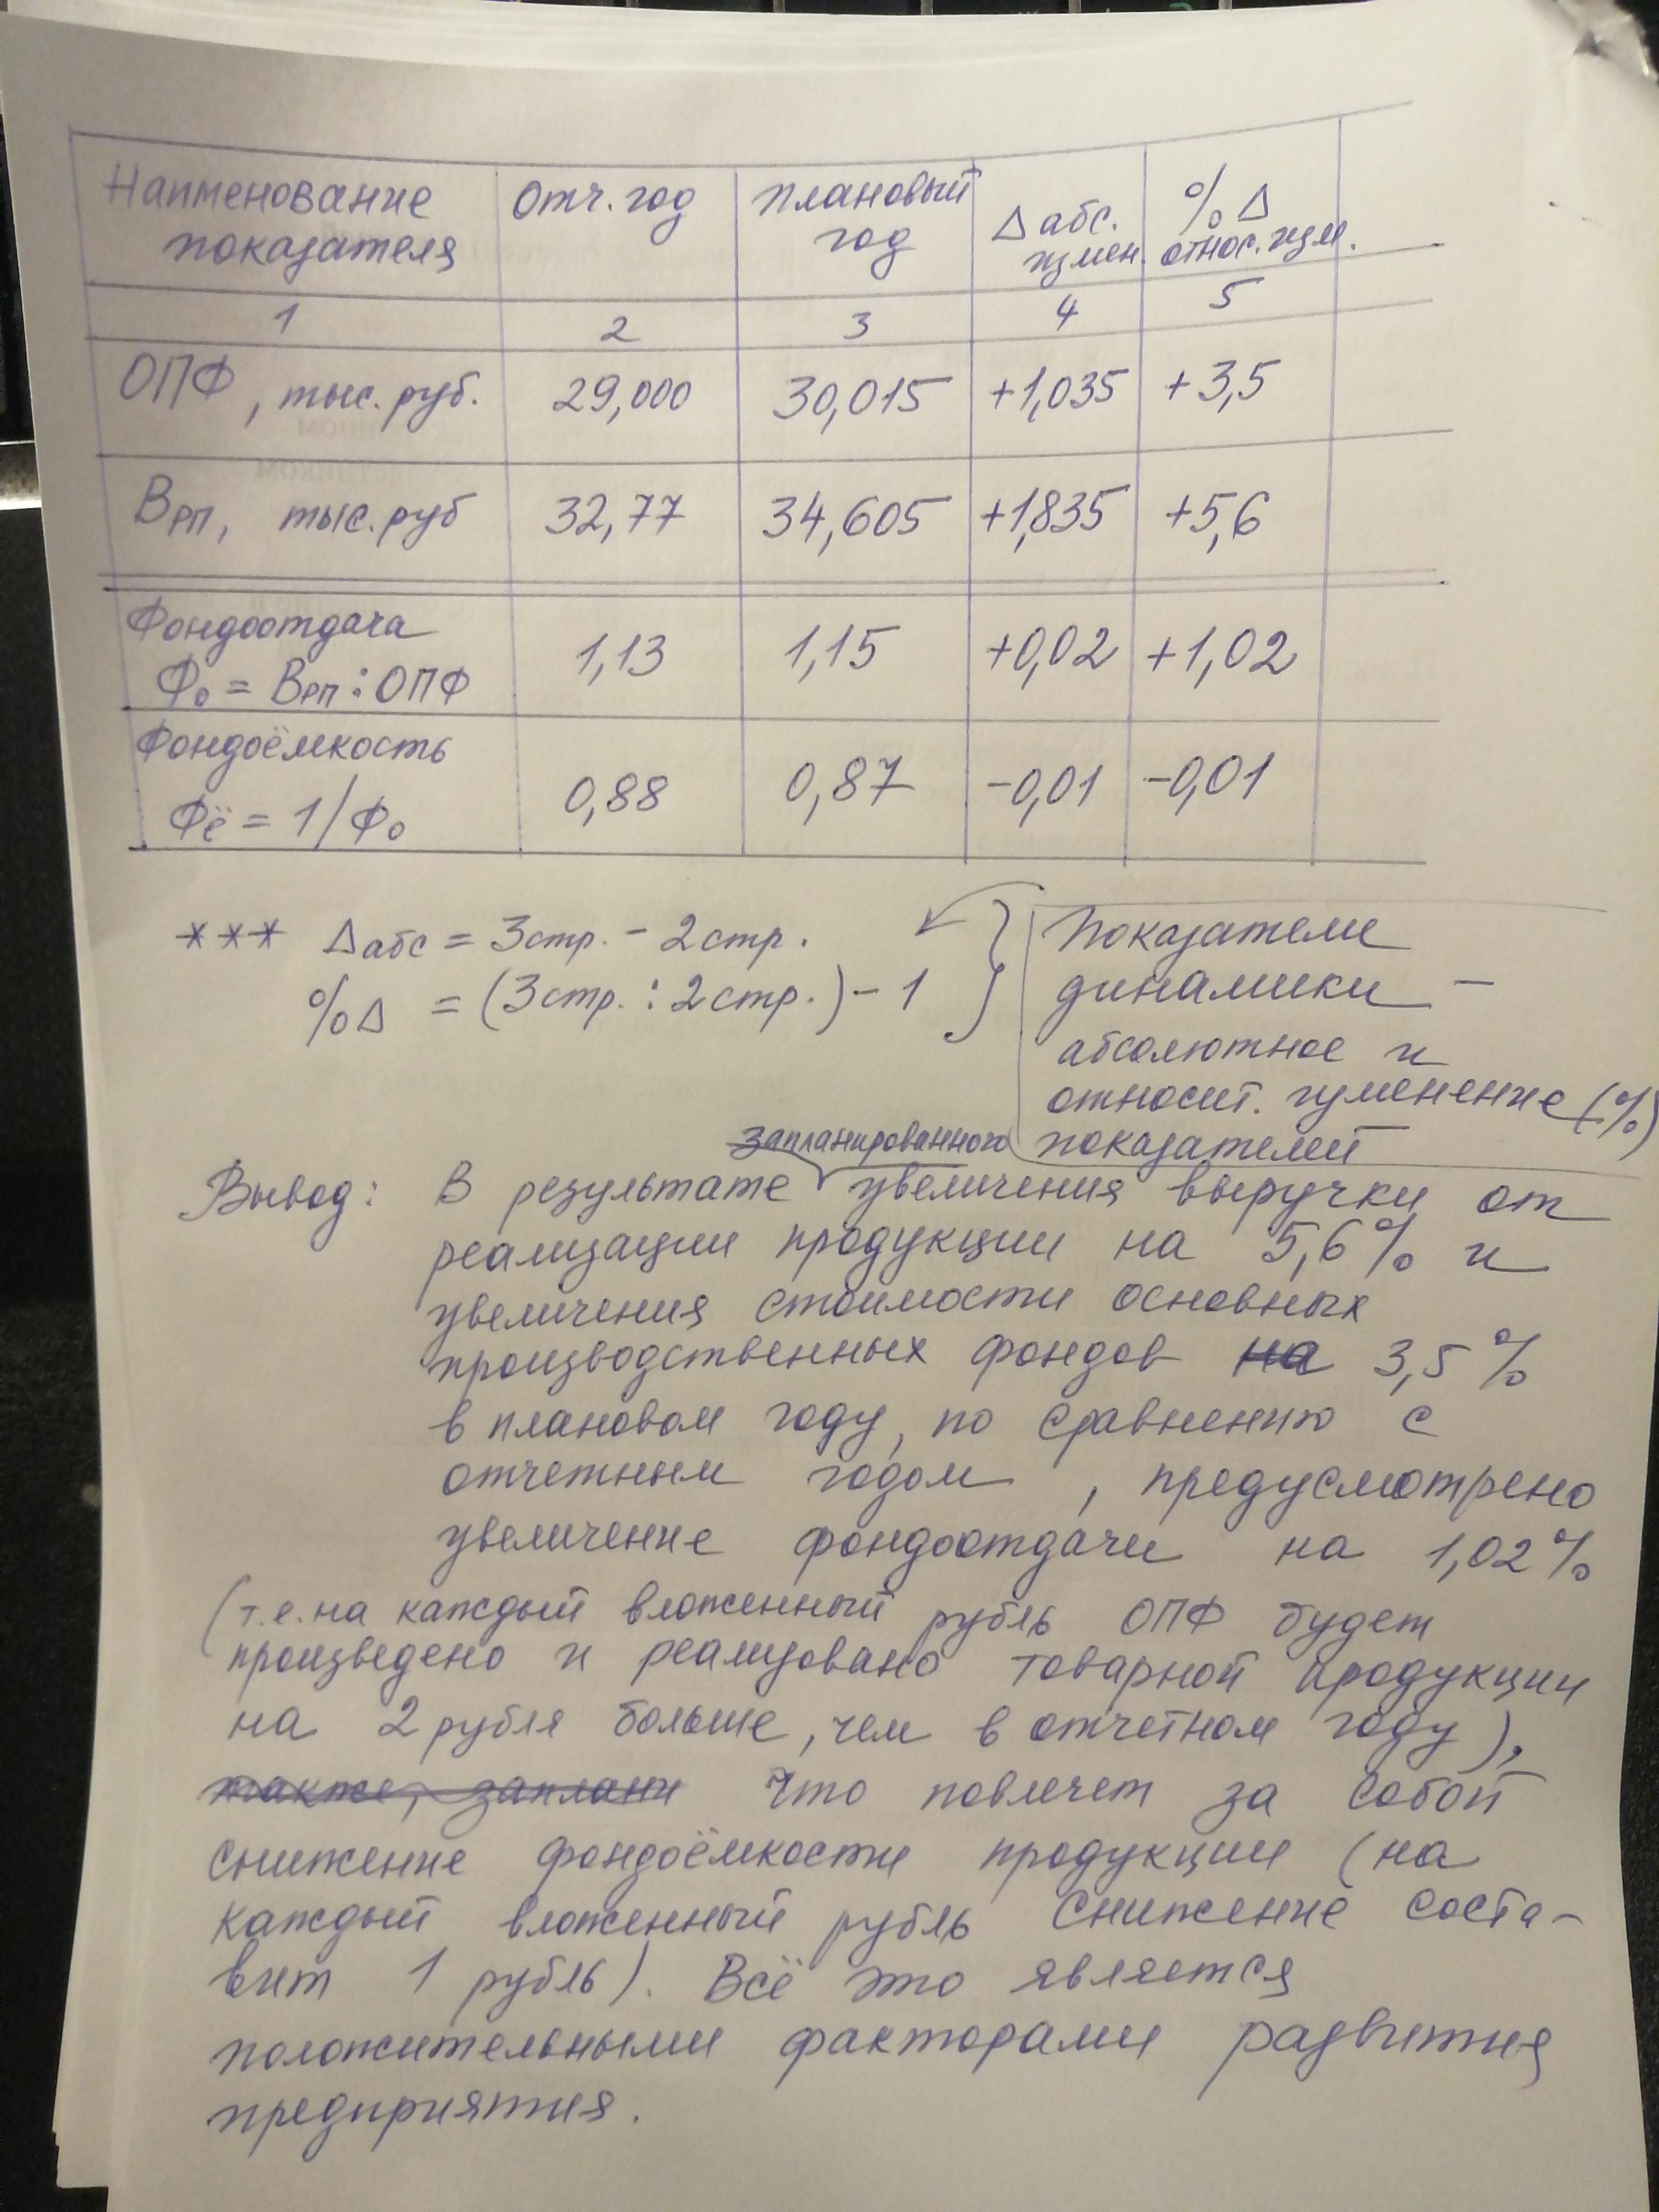 Наименование показателя | Отч. год | Плановый год | Δ абс. измен. | % Δ относ. изм.
1 | 2 | 3 | 4 | 5
ОПФ, тыс. руб. | 29,000 | 30,015 | +1,035 | +3,5
Врп, тыс. руб | 32,77 | 34,605 | +1,835 | +5,6
Фондоотдача Фо = Врп : ОПФ | 1,13 | 1,15 | +0,02 | +1,02
Фондоёмкость Фё = 1/Фо | 0,88 | 0,87 | -0,01 | -0,01
*** Δабс = 3стр. - 2стр.
%Δ = (3стр. : 2стр.) - 1
Показатели
динамики -
абсолютное и
относит. изменение (%)
показателей
запланированного
Вывод: В результате увеличения выручки от
реализации продукции на 5,6% и
увеличения стоимости основных
производственных фондов на 3,5%
в плановом году, по сравнению с
отчетным годом, предусмотрено
увеличение фондоотдачи на 1,02%
(т.е. на каждый вложенный рубль ОПФ будет
произведено и реализовано товарной продукции
на 2 рубля больше, чем в отчетном году),
также, заплани что повлечет за собой
снижение фондоёмкости продукции (на
каждый вложенный рубль снижение соста-
вит 1 рубль). Всё это является
положительными факторами развития
предприятия.